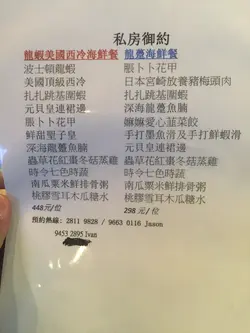 私房御約
龍蝦美國西冷海鮮餐
波士頓龍蝦
美國頂級西冷
扎扎跳基圍蝦
元貝皇連裙邊
深海龍躉魚腩
脹卜卜花甲
鮮甜聖子皇
深海龍躉魚腩
蟲草花紅棗冬菇蒸雞
時令七色時蔬
南瓜粟米鮮排骨粥
桃膠雪耳木瓜糖水
448元/位
龍躉海鮮餐
脹卜卜花甲
日本宮崎放養豬梅頭肉
扎扎跳基圍蝦
深海龍躉魚腩
嫲嫲愛心韮菜餃
手打墨魚滑及手打鮮蝦滑
元貝皇連裙邊
蟲草花紅棗冬菇蒸雞
時令七色時蔬
南瓜粟米鮮排骨粥
桃膠雪耳木瓜糖水
298 元/位
預約熱線: 2811 9828 / 9663 0116 Jason
9453 2895 Ivan